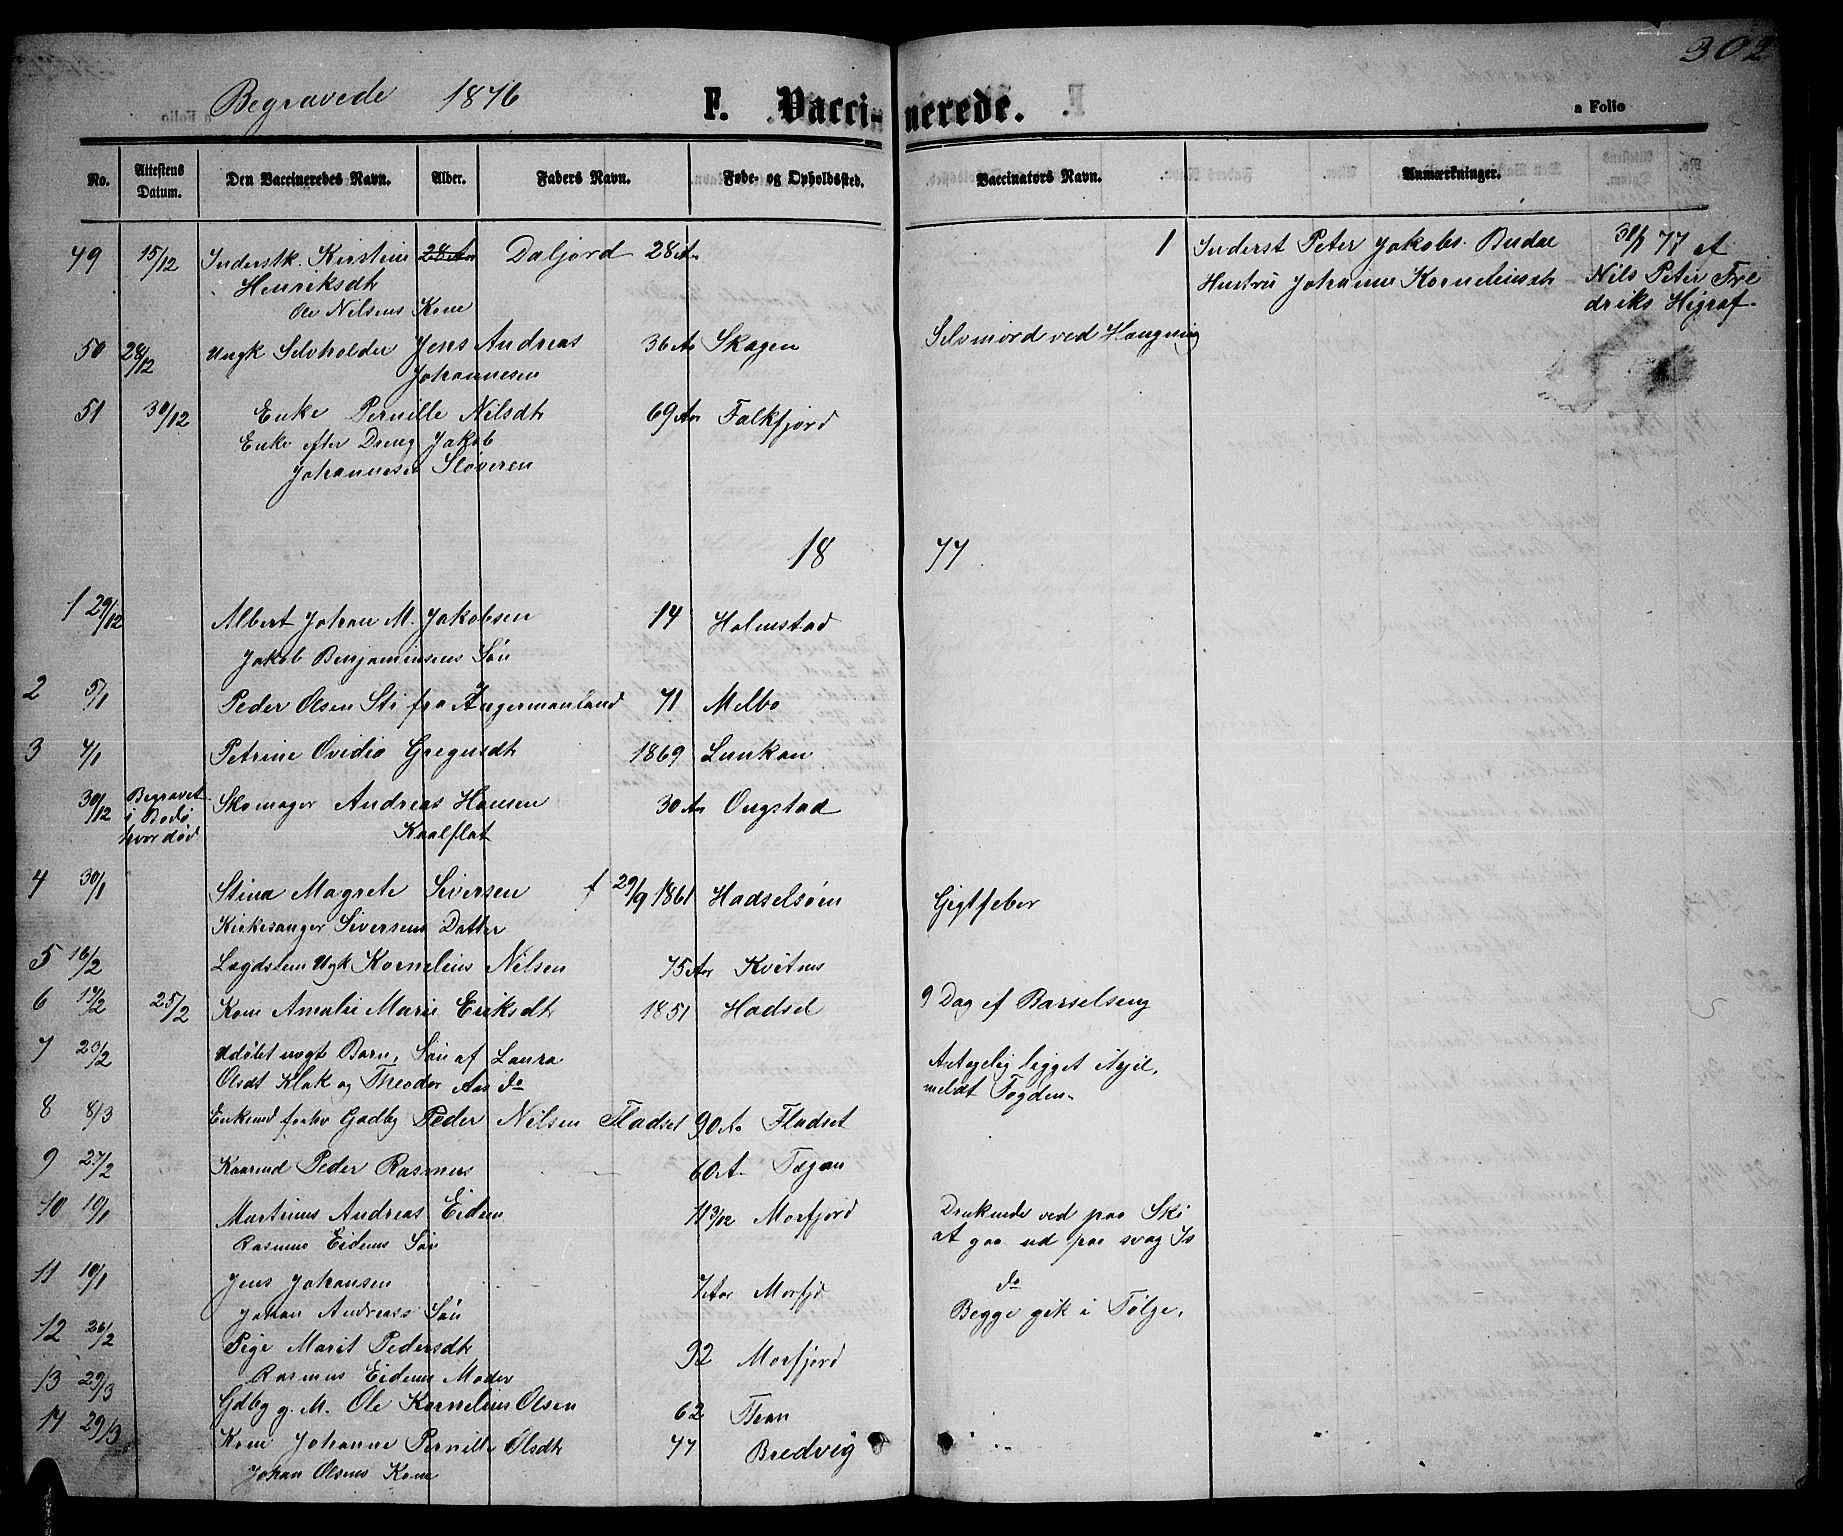 302
Begravede 1876 F. Vaccinerede. a Folio
No. Attestens Datum. Den Vaccineredes Navn. Alder. Faders Navn. Føde- og Opholdssted. Vaccinators Navn. Anmærkninger.
49 15/12 Inderstk. Kirstine 28 Aar Daljord 28 Ar
Henriksdt
Ole Nilsens Kone
1 Inderst Peter Jakobs. 77 et
Hustru Johanne Korneliusdt Nils Peter Fre
driks
50 28/12 Ungk Selvholder Jens Andreas 36 Ar Skagen Selvmord ved Hængning
Johannesen
51 30/12 Enke Pernille Nilsdt 69 Aar Falkfjord
Enke efter Dreng Jakob
Johannesen Sløveren
18 77
1 29/12 Albert Johan M. Jakobsen 14 Holmstad
Jakob Benjaminsens Søn
2 5/1 Peder Olsen Sti fra Angermanland 71 Melbo
3 4/1 Petrine Ovidia Gregusdt 1869 Lunkan
30/12 Begravet Skomager Andreas Hansen 30 Ar Ongstad
i Bodø Kaalflat
hvor død
4 30/1 Stina Magrete Siversen f 29/9 1861 Hadseløen Gigtfeber
Kirkesanger Siversens Datter
5 16/2 Lægdslem Ugk Kornelius Nilsen 75 Aar Kvitnes
6 17/2 25/2 Kone Amalie Marie Eriksdt 1851 Hadsel 9 Dag ef Barselseng
7 23/2 Udøbt uægte Barn, Søn af Laura
Olsdt Klak og Theodor Aas do meldt Fogden
8 8/3 Enkemd forhv Gadbg Peder Nilsen Fladset 90 Ar Fladset
9 27/2 Kaarmd Peder Rasmus 60 A
10 10/1 Martinus Andreas Eidem 11 3/12 Morfjord Druknede ved paa Ski
Rasmus Eidems Søn at gaa ud paa svag Is
11 10/1 Jens Johansen 7 Aar Morfjd do
Johan Andreass Søn Begge gik i Følge.
12 26/2 Pige Marit Pedersdt 92 Morfjord
Rasmus Eidems Moder
13 29/3 Gdbg g. M. Ole Kornelius Olsen 62
14 29/3 Kone Johanne Pernille Olsdt 77 Bredvig
Johan Olsens Kone